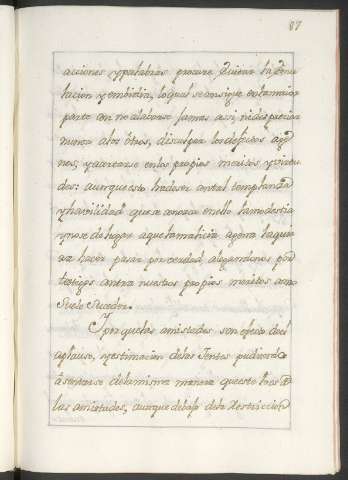 87
acciones y palabras procure quitar la emu
lacion y embidia, lo qual se consigue en la maior
parte con no alabarse Jamas assi, ni despreciar
nunca a los otros, disculpar los defectos age
nos, y acrarse en los propios meritos y virtu
des: aunque esto ha de ser con tal templanza
y habilidad que se conozca en ello la modestia
y no se dé lugar a que la malicia agena la quie
ra hacer pasar por verdad alegandonos por
testigos contra nuestros propios meritos como
suele suceder.
Y porque las amistades son efecto del
aplauso, y estimacion de las Gentes pudiera
asentarse de la misma manera que esto tras
las amistades, aunque debajo de la restriccion